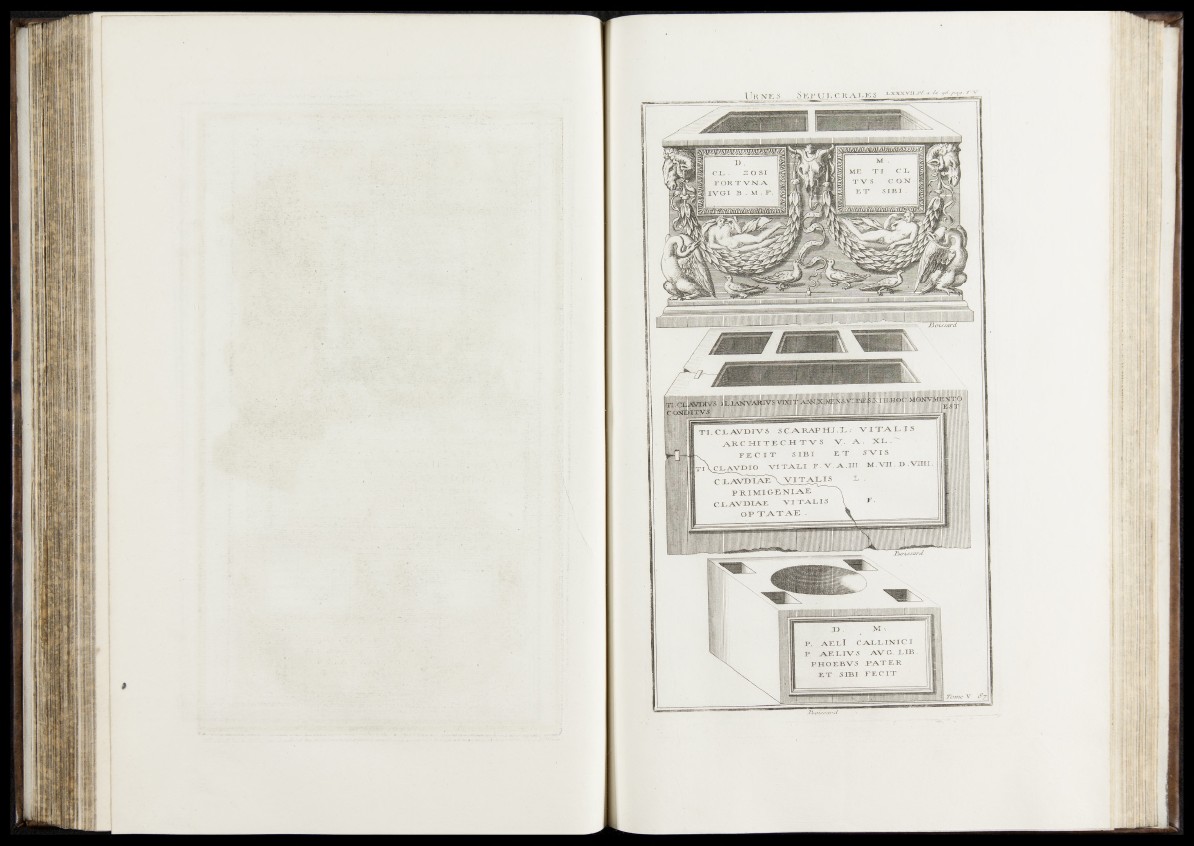 URNES SEPULCRALES LXXXVII. Pl. a la page T. V
D.
CL. ZOSI
FORTVNA
IVGI B. M. F.
M.
ME TI CL
TVS CON
ET SIBI
Boissard
TI. CLAVDIVS IANVARIVS VIXIT ANN. X. MENS. V. DIEB. HOC MONVMENTO
CONDITVS EST
TI. CLAVDIVS SCARAPHI. L. VITALIS
ARCHITECHTVS V. A. XL.
FECIT SIBI ET SVIS
TI CLAVDIO VITALI F V A. III M. VII D. VIIII.
CLAVDIAE VITALIS L.
PRIMIGENIAE
CLAVDIAE VITALIS F.
OPTATAE.
Boissard
D. M.
P. AELI CALLINICI
P AELIVS AVG. LIB.
PHOEBVS PATER
ET SIBI FECIT
Tome V 87
Boissard